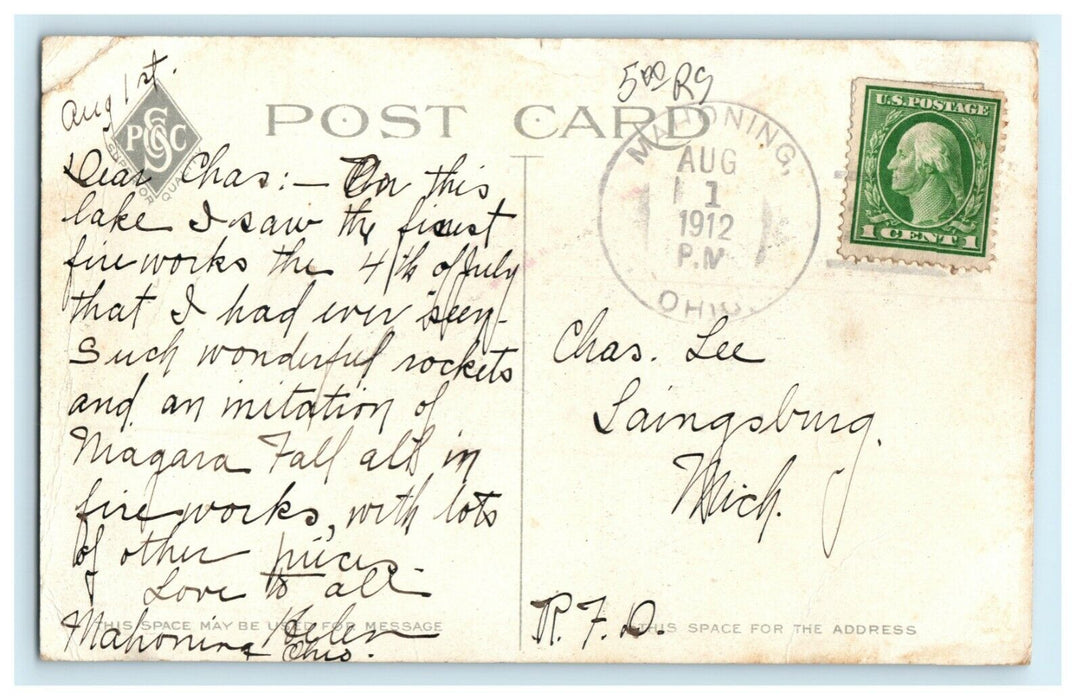 Aug 1st.
PCSC
SUPERIOR QUALITY
POST CARD
5.00 RS
MAHONING,
AUG
1
1912
P.M
OHIO.
U.S. POSTAGE
1 CENT 1
Dear Chas:— On this
lake I saw the finest
fireworks the 4th of July
that I had ever seen.
Such wonderful rockets
and an imitation of
Niagara Fall all in
fire works, with lots
of other pieces.
Love to all
Helen
Mahoning
Ohio.
THIS SPACE MAY BE USED FOR MESSAGE
Chas. Lee
Laingsburg.
Mich.
R. F. D.
THIS SPACE FOR THE ADDRESS